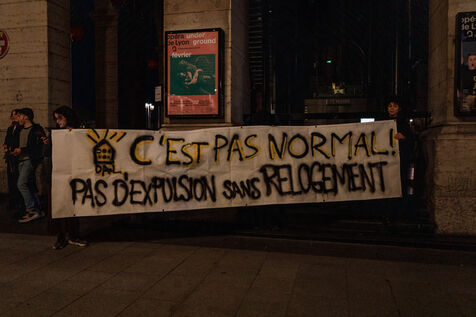 opéra under
de Lyon ground
février
DAL
C'EST PAS NORMAL!
PAS D'EXPULSION SANS RELOGEMENT
opéra
de Lyon